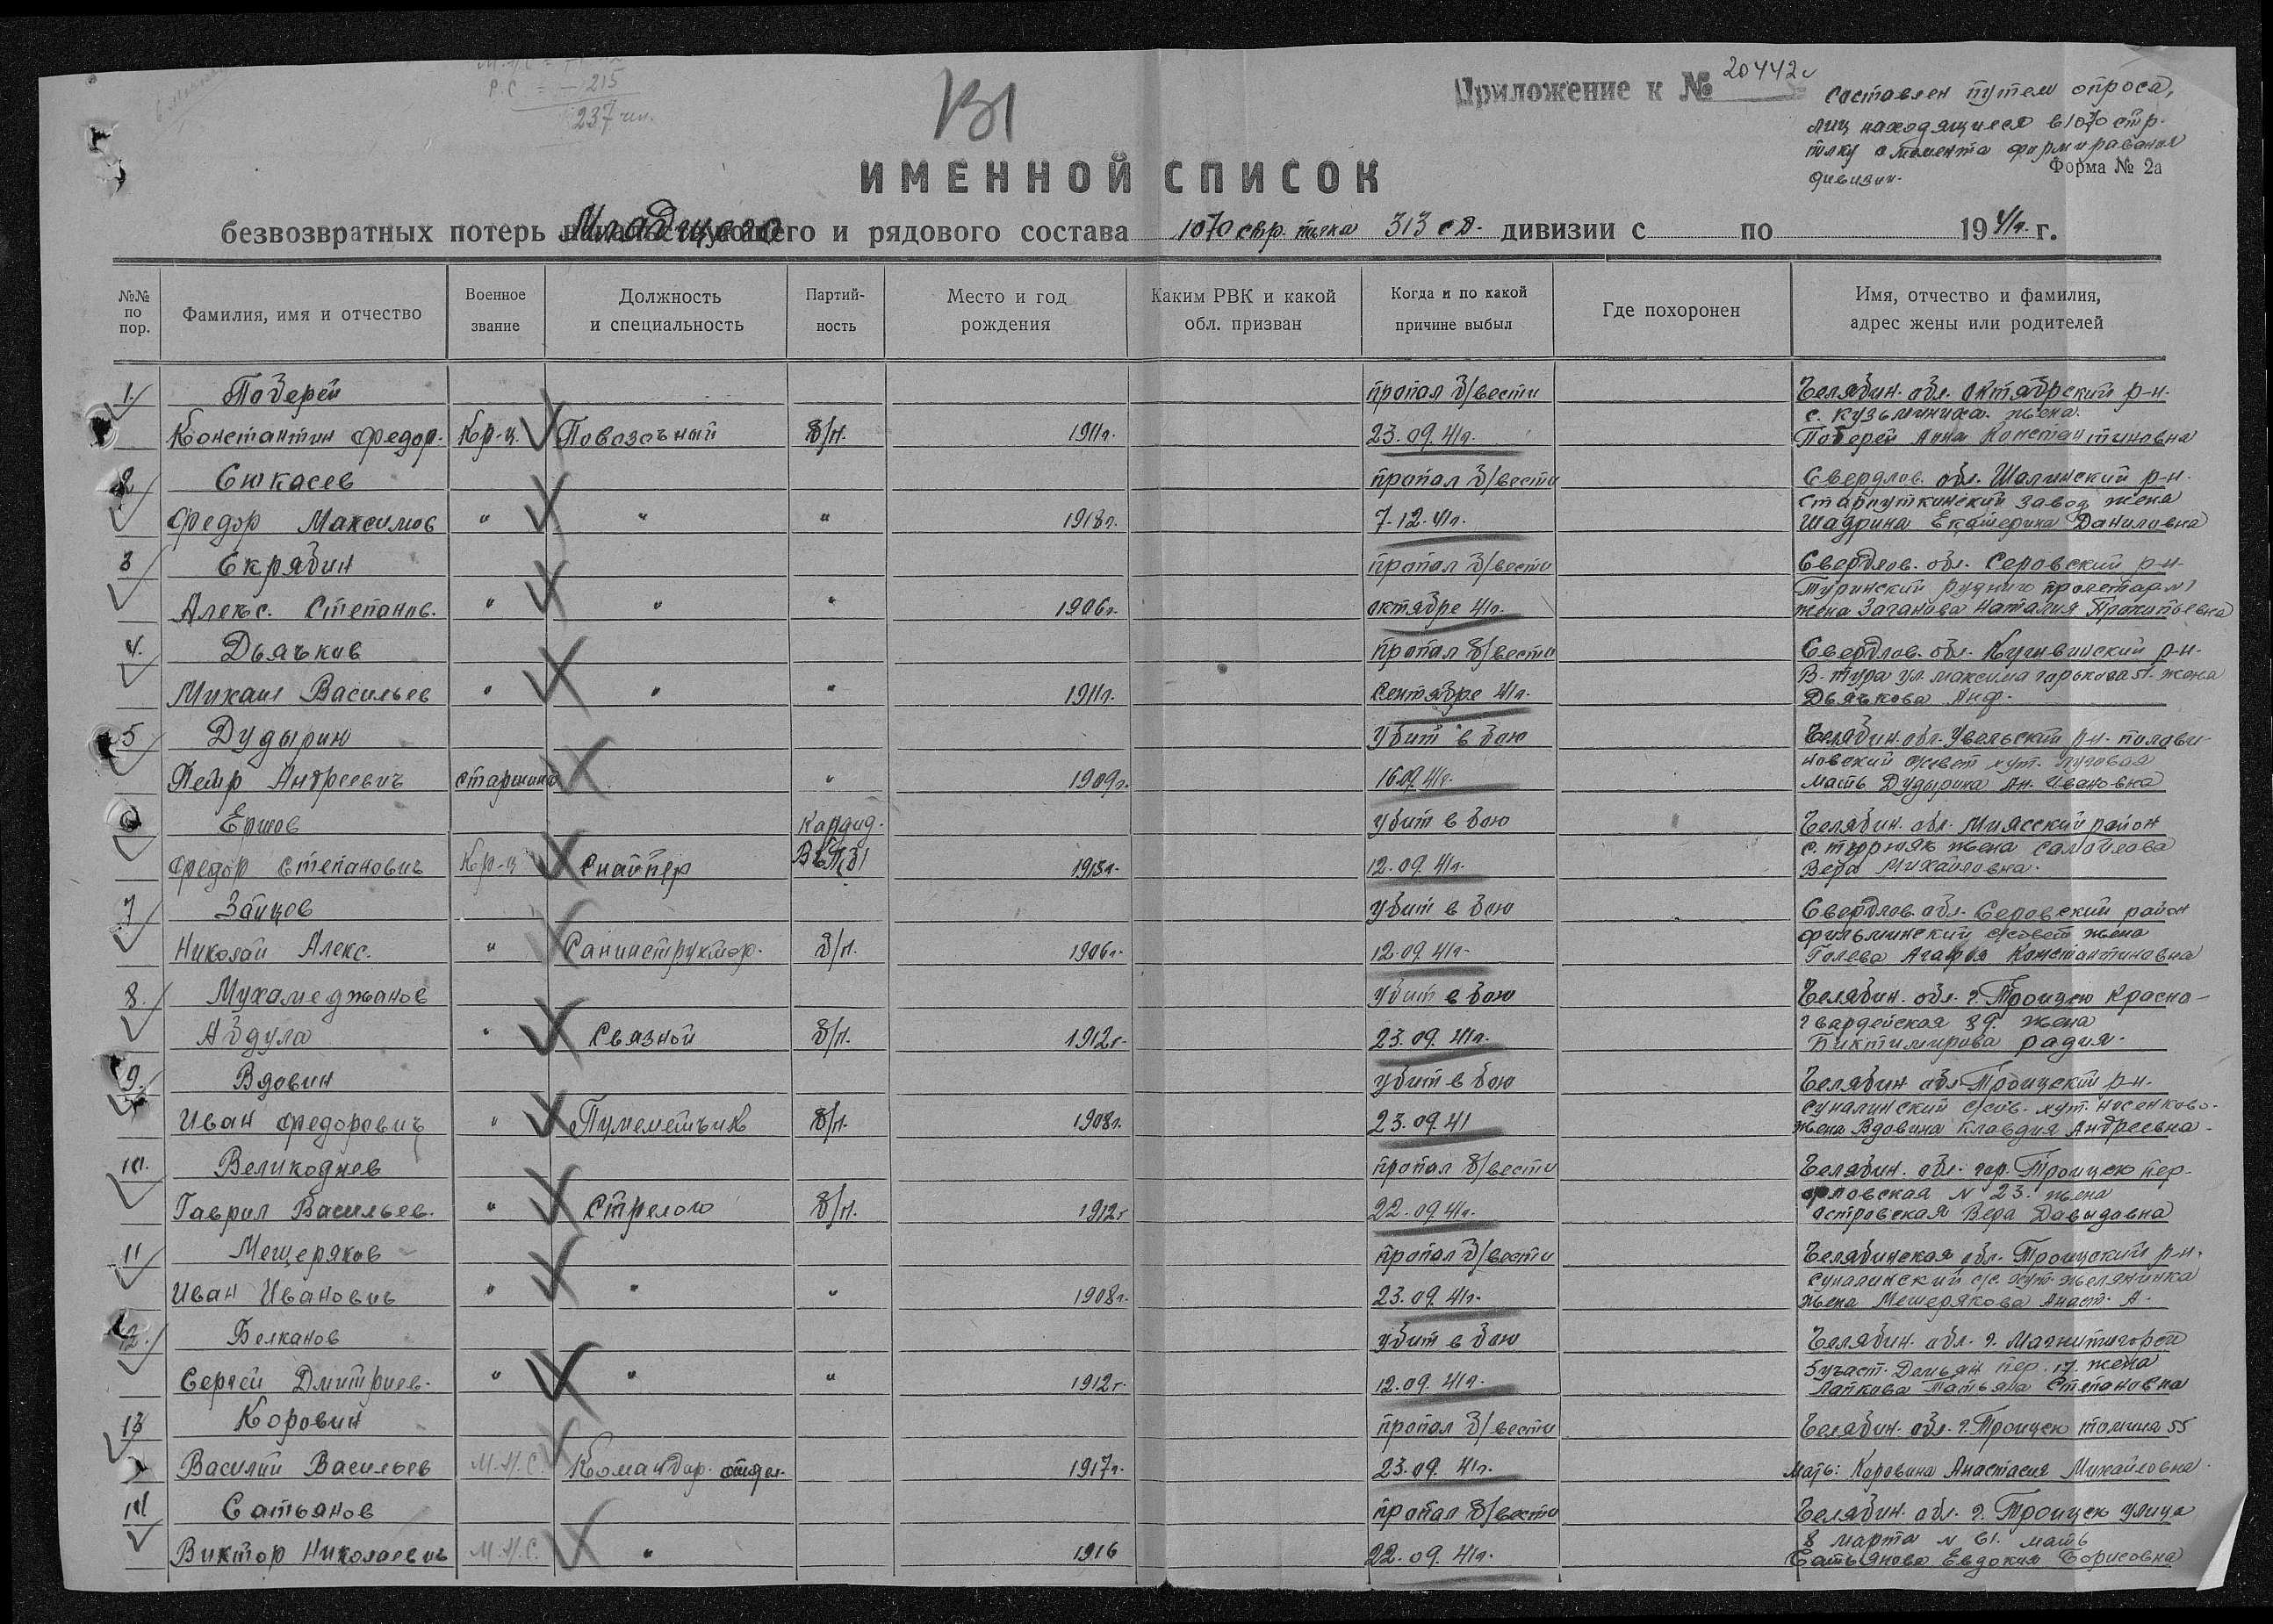 Р.С = - 215
237 чел.
131
Приложение к № 20442с
Составлен путем опроса,
лиц находящиеся в 1070 стр.
полку с момента формирования
дивизии.
Форма № 2а
ИМЕННОЙ СПИСОК
безвозвратных потерь Младшего и рядового состава 1070 стр. полка 313 сд. дивизии с по 1941г. г.
№№ по пор.
Фамилия, имя и отчество
Военное звание
Должность и специальность
Партийность
Место и год рождения
Каким РВК и какой обл. призван
Когда и по какой причине выбыл
Где похоронен
Имя, отчество и фамилия, адрес жены или родителей
1. Поберей пропал б/вести Челябин. обл. Октябрский р-н.
с. Кузьминиха. жена.
Константин Федор. Кр-ц. Повозочный б/п. 1911г. 23.09.41г. Поберей Анна Константиновна
2 Сюкасев пропал б/вести Свердлов. обл. Шалинский р-н.
Староуткинский завод жена
Федор Максимов " " " 1918г. 7.12.41г. Шадрина Екатерина Даниловна
3 Скрябин пропал б/вести Свердлов. обл. Серовский р-н.
Туринский рудник
Алекс. Степанов. " " " 1906г. октябре 41г. жена Заганова Наталия Прокопьевна
4. Дьячков пропал б/вести Свердлов. обл. Кушвинский р-н.
В. тура ул. максима горького 51. жена
Михаил Васильев " " " 1911г. Сентябре 41г. Дьячкова Анф.
5 Дудырин Убит в бою Челябин. обл. Увельский р-н. полови-
новский с/совет хут. луговая
Петр Андреевич старшина " 1909г. 16.09.41г. мать Дудырина Ан. Ивановна
6 Ершов Кандид. Убит в бою Челябин. обл. Миасский район
с. тургояк жена Самойлова
Федор Степанович Кр-ц Снайпер ВКП(б) 1913г. 12.09.41г. Вера Михайловна.
7 Зайцов Убит в бою Свердлов. обл. Серовский район
Филькинский с/совет жена
Николай Алекс. " Санинструктор. б/п. 1906г. 12.09.41г. Голева Агафья Константиновна
8. Мухамеджанов Убит в бою Челябин. обл. г. Троицк Красно-
гвардейская 89. жена
Абдула " Связной б/п. 1912г. 23.09.41г. Биктимирова радия.
9. Вдовин Убит в бою Челябин обл Троицкий р-н.
Суналинский с/сов. хут. Носенково.
Иван Федорович " Пулеметчик б/п. 1908г. 23.09.41 жена Вдовина Клавдия Андреевна.
10. Великоднев пропал б/вести Челябин. обл. гор. Троицк пер.
орловская N 23. жена
Гаврил Васильев. " Стрелок б/п. 1912г 22.09.41г. Островская Вера Давыдовна
11 Мещеряков пропал б/вести Челябинская обл. Троицкий р-н.
Суналинский с/с. хут. желянинка
Иван Иванович " " " 1908г. 23.09.41г. жена Мещерякова Анаст. А.
12. Белканов Убит в бою Челябин. обл. г. Магнитогорск
5 участ. Демьян пер. 17. жена
Сергей Дмитриев. " " " 1912г. 12.09.41г. Лапкова Татьяна Степановна
13 Коровин пропал б/вести Челябин. обл. г. Троицк томина 55
Василий Васильев М.Н.С. Командир. отдел. 1917г. 23.09.41г. мать: Коровина Анастасия Михайловна.
14 Сатьянов пропал б/вести Челябин. обл. г. Троицк улица
8 марта N 61. мать
Виктор Николаевич М.Н.С. " 1916 22.09.41г. Сатьянова Евдокия Борисовна